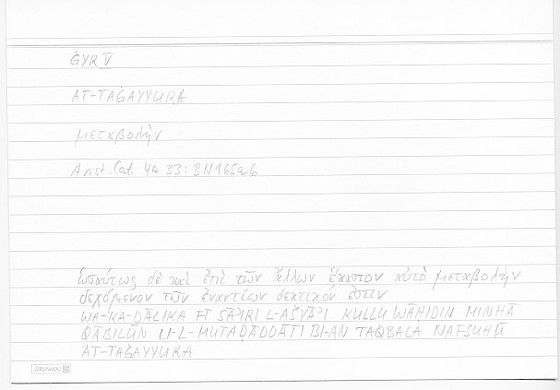 ĠYR V
AT-TAĠAYYURA
μεταβολὴν
Arist. Cat. 4a 33: BN165a6
ὡσαύτως δὲ καὶ ἐπὶ τῶν ἄλλων ἕκαστον αὐτὸ μεταβολὴν
δεχόμενον τῶν ἐναντίων δεκτικόν ἐστιν
WA-KA-ḎĀLIKA FĪ SĀʾIRI L-AŠYĀʾI KULLU WĀḤIDIN MINHĀ
QĀBILUN LI-L-MUTAḌĀDDĀTI BI-AN TAQBALA NAFSUHŪ
AT-TAĠAYYURA